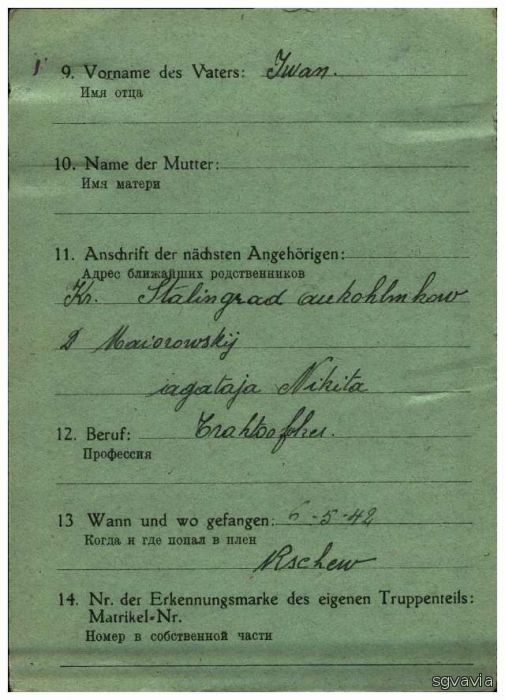 9. Vorname des Vaters: Iwan.
Имя отца
10. Name der Mutter:
Имя матери
11. Anschrift der nächsten Angehörigen:
Адрес ближайших родственников
Kr. Stalingrad
D Maiorowskij
Nikita
12. Beruf:
Профессия
13 Wann und wo gefangen: 6-5-42
Когда и где попал в плен
Rschew
14. Nr. der Erkennungsmarke des eigenen Truppenteils:
Matrikel-Nr.
Номер в собственной части
sgvavia